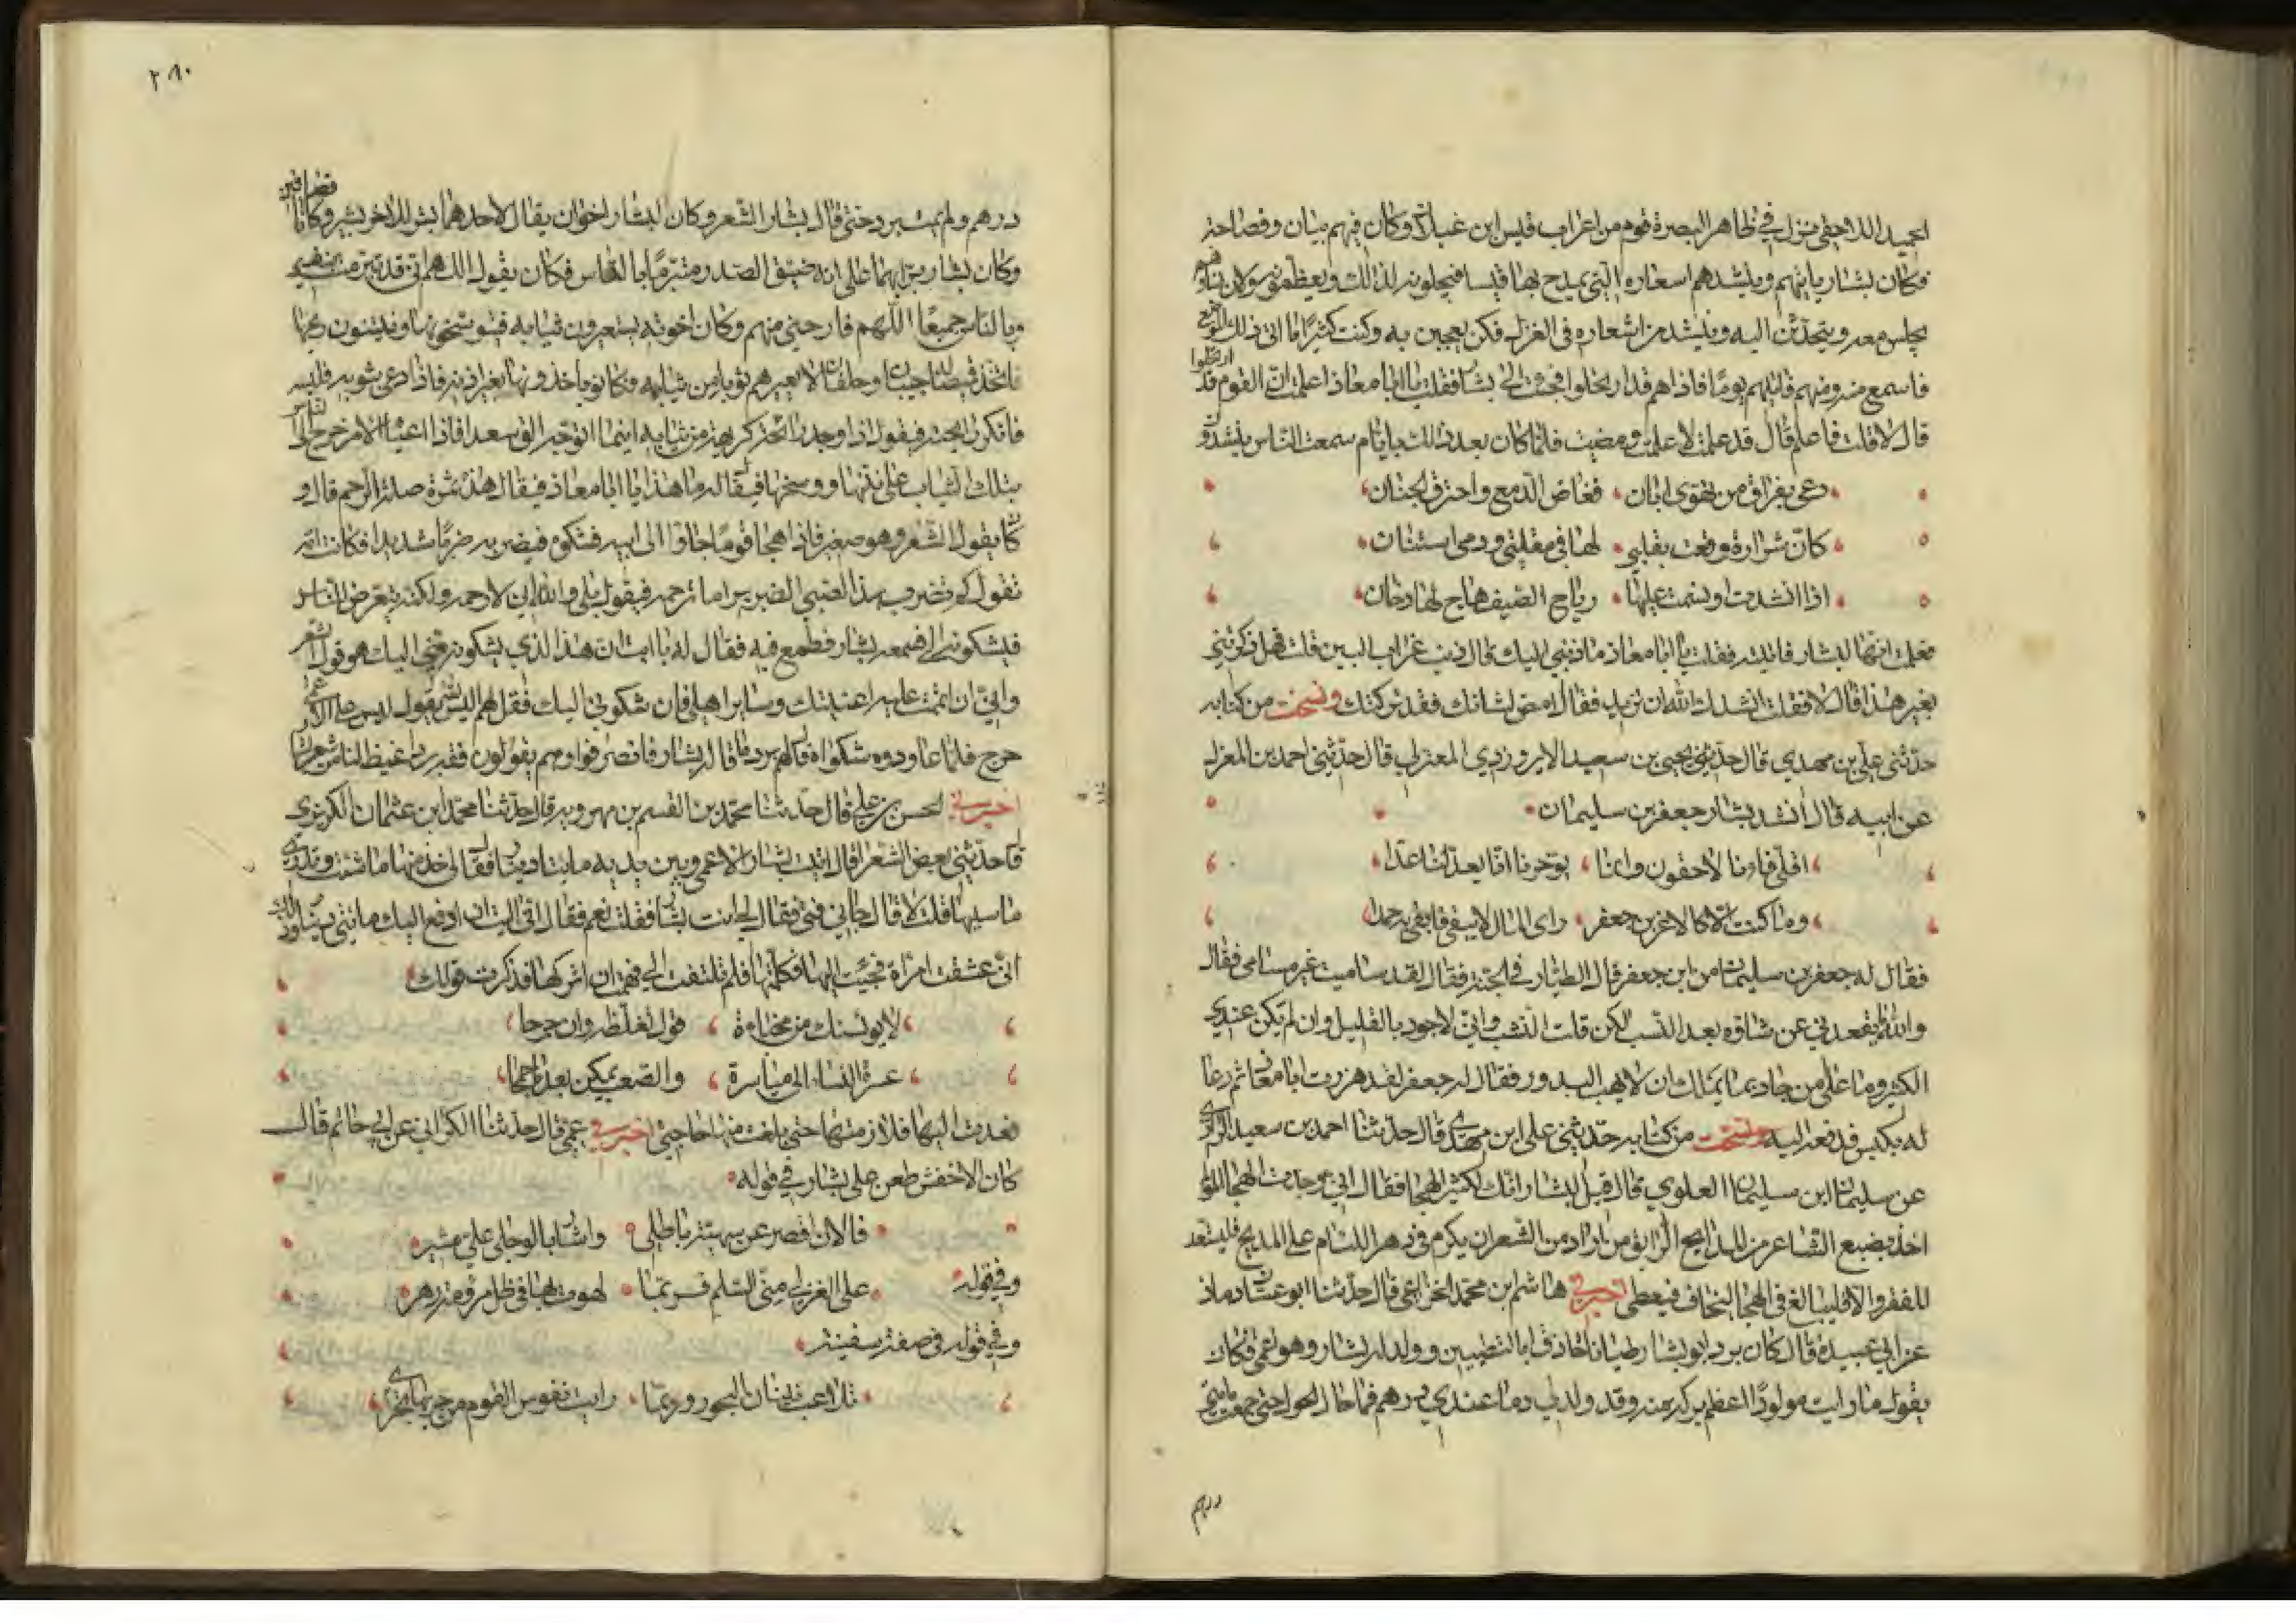 الحميد اللاحقي نزل في ظاهر البصرة قوم من اعراب قيس ابن عيلان وكان فيهم بيان وفصاحة
فكان بشار ياتيهم وينشدهم اسعاره التي يمدح بها قيسا فيجلونه لذالك ويعظمونه وكان نساوهم
يجلس معه ويتحدثن اليه وينشد من اشعاره في الغزل فكن يعجبن به وكنت كثيرًا ما اتي ذلك الموضع
فاسمع منه ومنهم فاتيتهم يومًا فاذا هم قد ارتحلوا فجئت الى بشار فقلت يا ابا معاذ اعلمت ان القوم قد ارتحلوا
قال لا قلت فاعلم قال قد علمت لا علمت ومضيت فلما كان بعد ذلك بايام سمعت الناس ينشدون
دعى بفراق من تهوى ابان فغاض الدمع واحترق الجنان
كان شرارة وقعت بقلبي لها في مقلتي ودمي استنان
اذا انشدت او نسمت عليها رياح الصيف هاج لها دخان
فعلمت انها لبشار فاتيته فقلت يا ابا معاذ ما ذنبي اليك قال ذنب غراب البين قلت فهل ذكرتني
بغير هذا قال لا فقلت انشدك الله ان تزيد فقال امض لشانك فقد تركتك ونسخت من كتابه
حدثني علي بن مهدي قال حدثني يحيى بن سعيد الايروزدي المعتزلي قال حدثني احمد بن المعزل
عن ابيه قال أنشد بشار جعفر بن سليمان
اقلي فانا لاحقون وانا يوخرنا انا يعد لنا عدا
وما كنت الا كالاغر بن جعفر راى المال لا يبقى فابقى به حمدا
فقال له جعفر بن سليمان من ابن جعفر قال الطيار في الجنة فقال لقد ساميت غير مسامي فقال
والله ما يقعدني عن شاوه بعد النسب لكن قلت النشب واني لاجود بالقليل وان لم يكن عندي
الكثير وما على من جاد بما يملك ان لا يهب البدور فقال له جعفر لقد هززت ابا معاذ ثم دعا
له بكيس فدفعه اليه ونسخت من كتابه حدثني علي ابن مهدي قال حدثنا احمد بن سعيد الرازي
عن سليمان ابن سليمان العلوي قال قيل لبشار انك لكثير الهجا فقال اني وجدت الهجا المولم
اخذ بضبع الشاعر من المديح الرايق من اراد من الشعر ان يكرم في دهر اللئام على المديح فليستعد
للفقر والا فليبالغ في الهجا ليخاف فيعطى اخبرني هاشم ابن محمد الخزاعي قال حدثنا ابو غسان دماذ
عن ابي عبيدة قال كان برد ابو بشار طيانا حاذقا بالتطيين وولد له بشار وهو اعمى فكان
يقول ما رايت مولودًا اعظم بركة منه وقد ولد لي وما عندي درهم فما حال الحول حتى جمعت مايتي
درهم
٢٨٠
درهم ولم يمت برد حتى قال بشار الشعر وكان لبشار اخوان يقال لاحدهما بشر للاخر بشير وكانا قصابين
وكان بشار برًا بهما على انه ضيق الصدر متبرمًا بالناس فكان يقول اللهم اني قد تبرمت بنفسي
وبالناس جميعًا اللهم فارحني منهم وكان اخوته يستعيرون ثيابه فيوسخونها وينتنون ريحها
فاتخذ قميصا له جيبان وحلف ان لا يعيرهم ثوبا من ثيابه فكانو ياخذونها بغير اذنه فاذا دعى بثوبه فلبسه
فانكر رايحته فيقول اذا وجد رايحة كريهة من ثيابه اينما اتوجه الق سعدا فاذا اعياه الامر خرج الى الناس
بتلك الثياب على نتنها ووسخها فيقال له ما هذا يا ابا معاذ فيقال هذه ثمرة صلة الرحم قال و
كان يقول الشعر وهو صغير فاذا هجا قومًا جاؤا الى ابيه فشكوه فيضربه ضربًا شديدا فكانت امه
تقول كم تضرب هذا الصبي الضرير اما ترحمه فيقول بلى والله اني لارحمه ولكنه يتعرض للناس
فيشكونه الي فسمعه بشار فطمع فيه فقال له يا ابت ان هذا الذي يشكونه مني اليك هو قول الشعر
واني ان اتممت عليه اغنيتك وساير اهلي فان شكوني اليك فقل لهم اليس الله يقول ليس على الاعمى
حرج فلما عاودوه شكواه قال لهم برد ما قاله بشار فانصرفوا وهم يقولون فقه برد اغيظ لنا من شعر بشار
اخبرني الحسن بن علي قال حدثنا محمد بن القسم بن مهرويه قال حدثنا محمد ابن عثمان الكريزي
قال حدثني بعض الشعرا قال اتيت بشار الاعمى وبين يديه مايتا دينار فقال لي خذ منها ما شئت وتدري
ما سببها قلت لا قال جاني فتى فقال لي انت بشار فقلت نعم فقال اني اليت ان ادفع اليك مايتي دينار وذلك
اني عشقت امراة فجيت اليها فكلمتها فلم تلتفت الي فهممت ان اتركها فذكرت قولك
لا يويسنك من مخباة قول تغلظه وان جرحا
عسر النسا الى مياسرة والصعب يمكن بعد ما جمحا
فعدت اليها فلازمتها حتى بلغت منها حاجتي اخبرني عمي قال حدثنا الكراني عن ابي حاتم قال
كان الاخفش طعن على بشار في قوله
فالان اقصر عن سمية باطلي واشار بالوجلى علي مشير
وفي قوله على الغزلى مني السلم فربما لهوت بها في ظل مرؤمة زهر
وفي قوله في صفة سفينة
تلاعب نينان البحور وربما رايت نفوس القوم من جريها تجرى